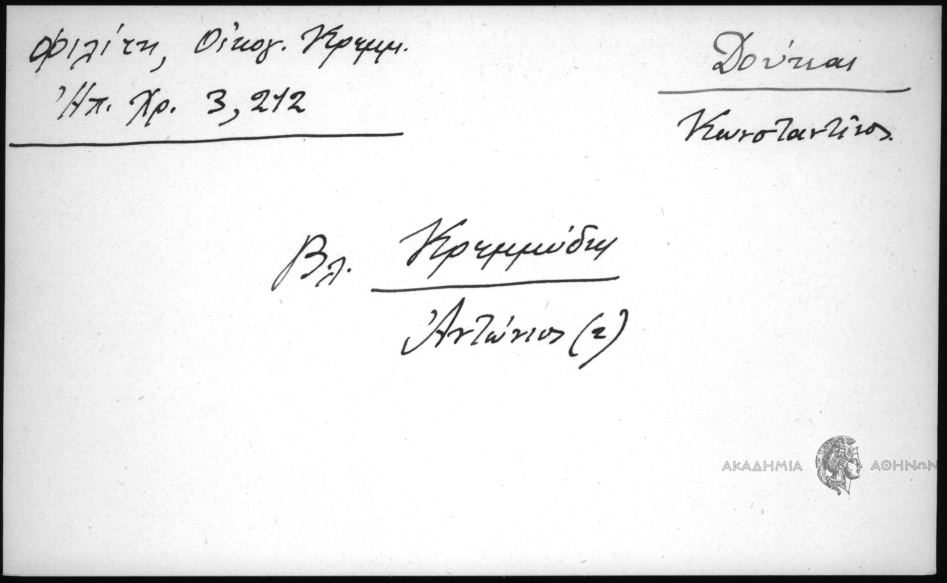 Φιλίτη, Οἰκογ. Κρεμμ.
Ἠπ. Χρ. 3, 212
Δούκας
Κωνσταντῖνος
Βλ. Κρεμμύδης
Ἀντώνιος (2)
ΑΚΑΔΗΜΙΑ ΑΘΗΝΩΝ